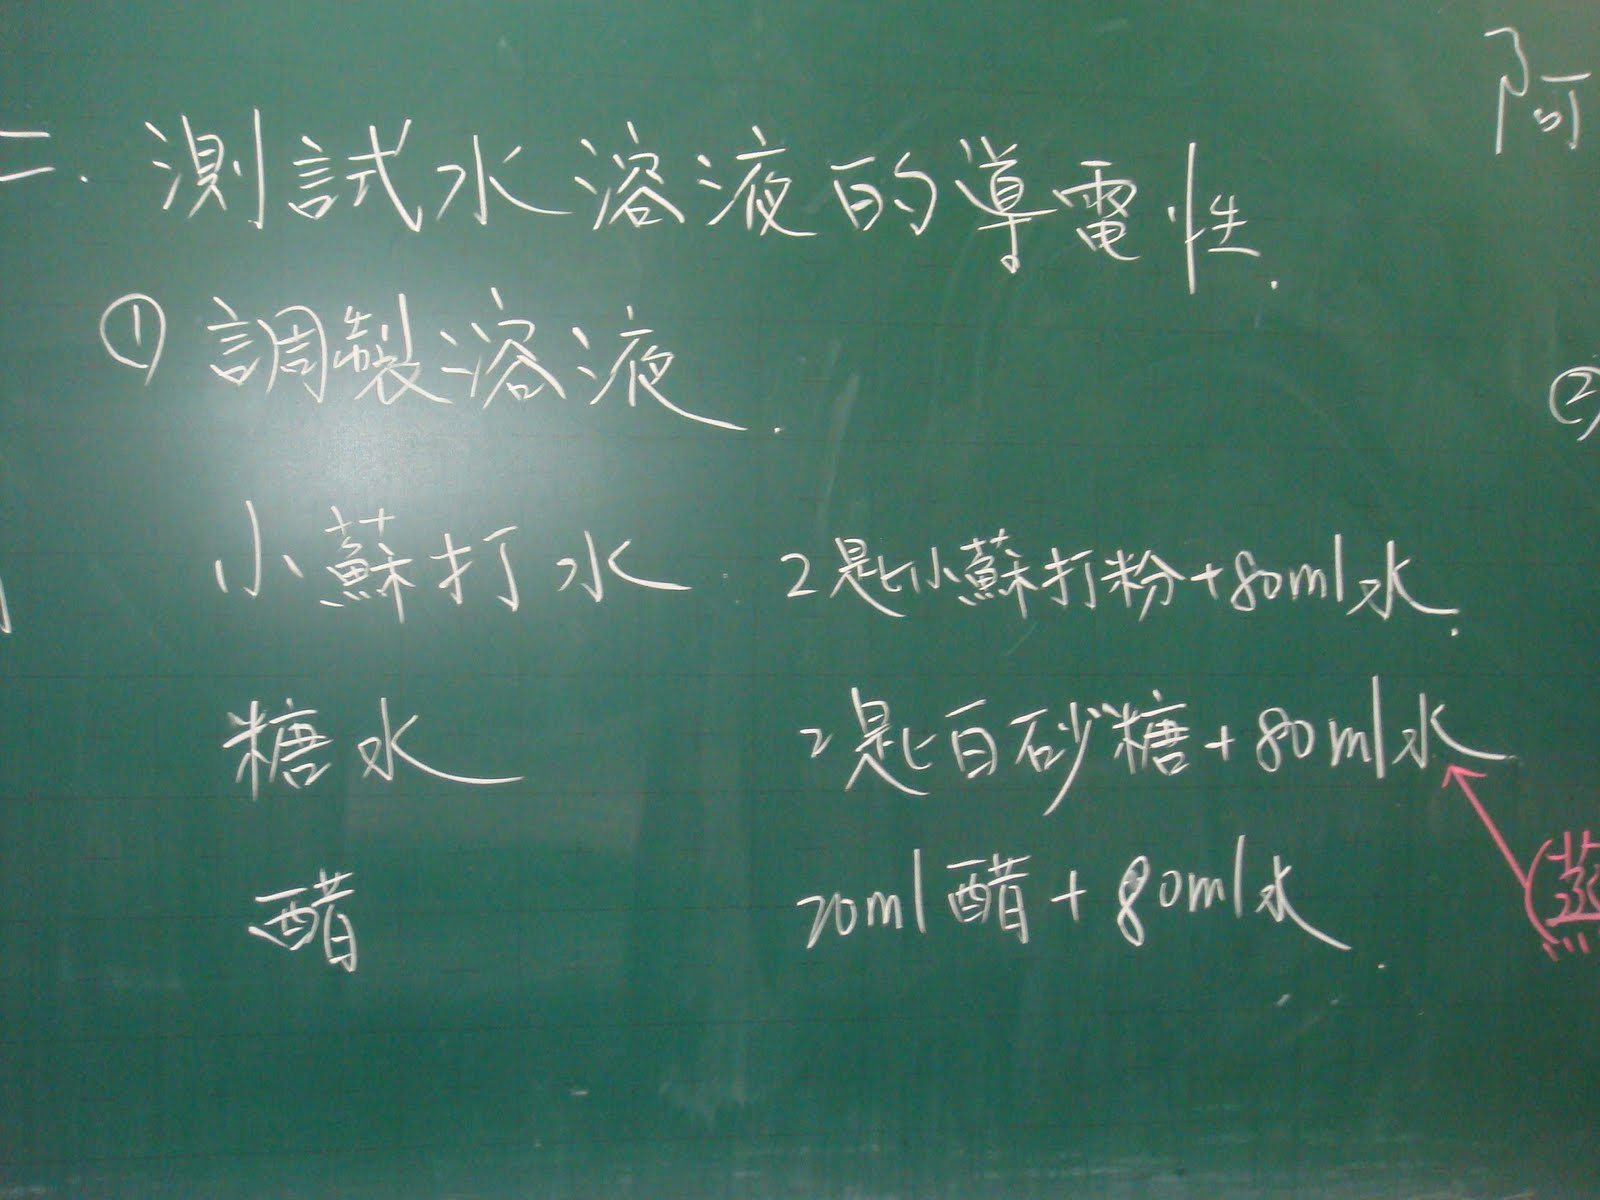 二.測試水溶液的導電性.
①調製溶液.
小蘇打水 2匙小蘇打粉+80ml水.
糖水 2匙白砂糖+80ml水
醋 20ml醋+80ml水.
(蒸
阿
②